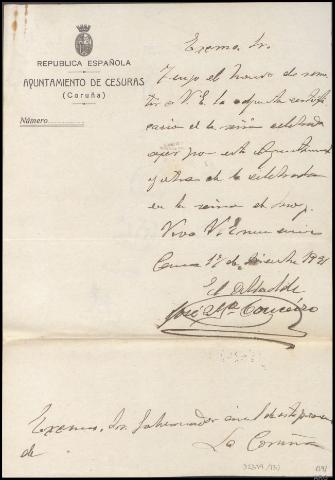 REPUBLICA ESPAÑOLA
AYUNTAMIENTO DE CESURAS
(Coruña)
Número
Excmo. Sr.
Tengo el honor de remi-
tir a V. E. la adjunta certifi-
cación de la sesión celebrada
ayer por este Ayuntamiento
y otra de la celebrada
en la de hoy
Viva V. E.
de 1931
El Alcalde
José
Excmo. Sr. Gobernador civil de esta provincia
de
La Coruña